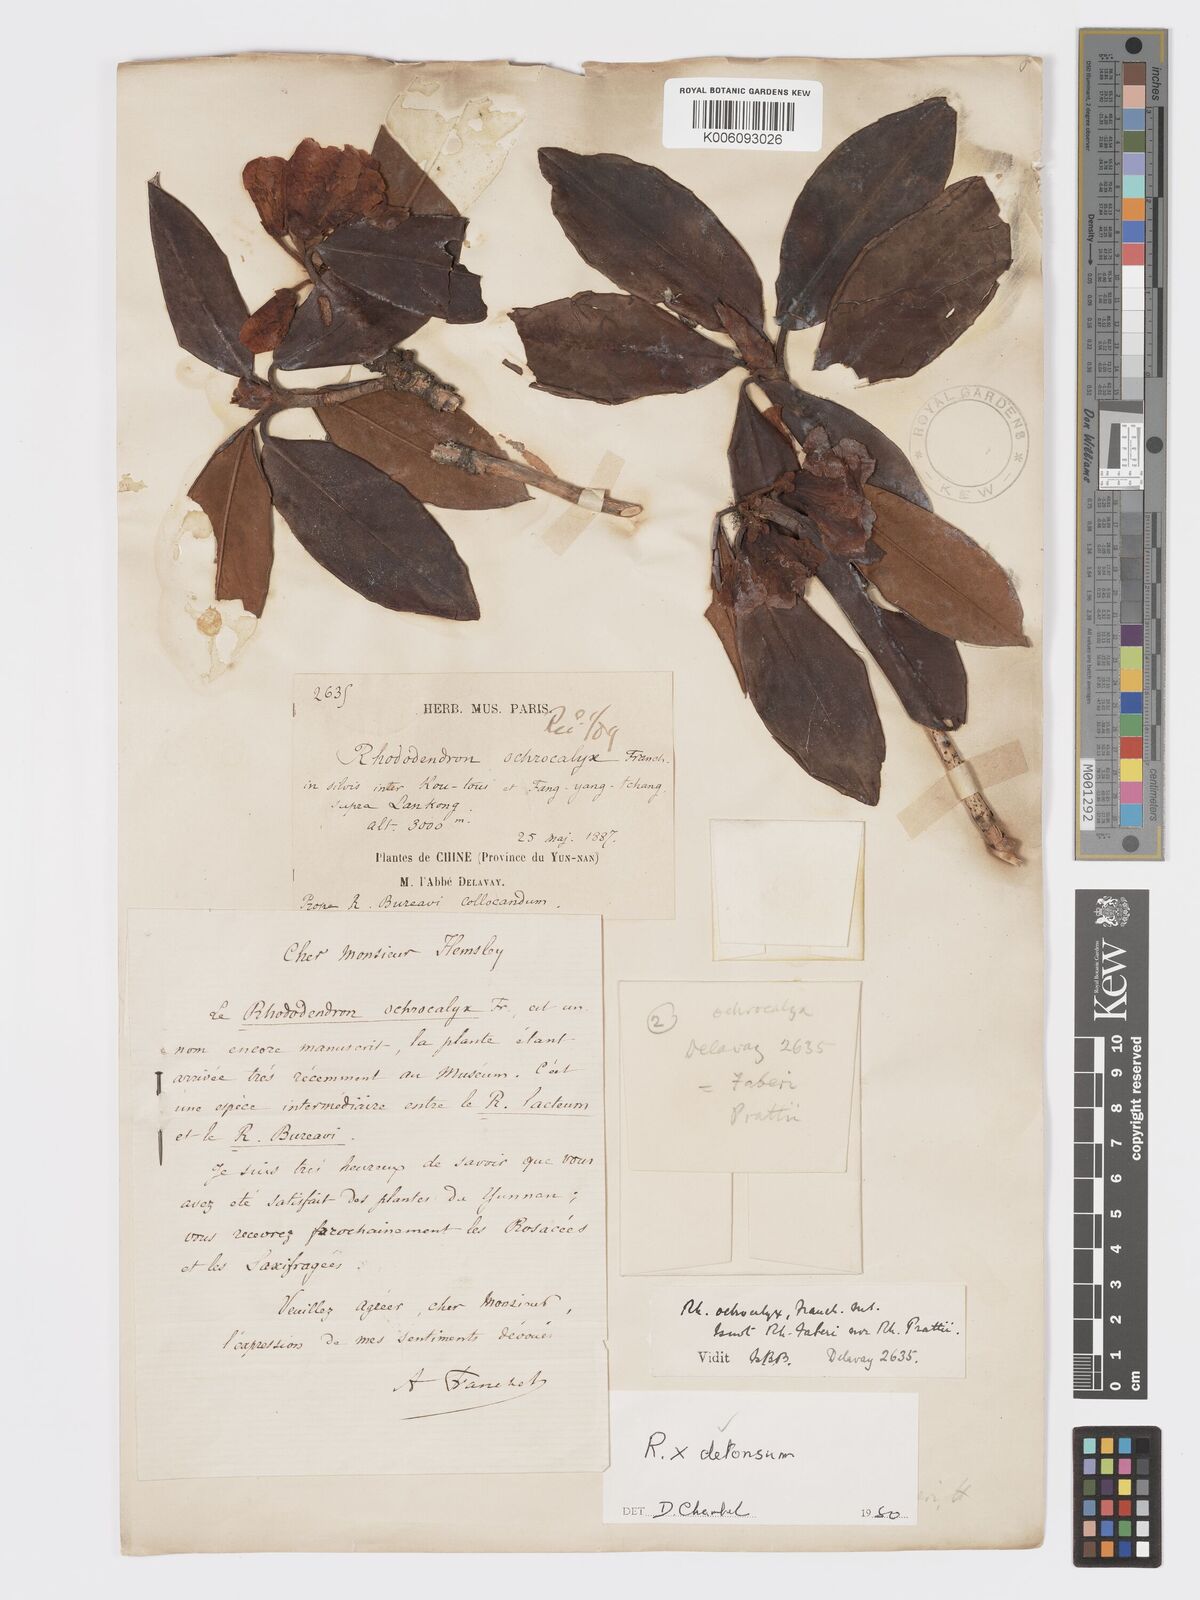 ROYAL BOTANIC GARDENS KEW
K006093026
ROYAL GARDENS
KEW
2635
HERB. MUS. PARIS.
Rhododendron ochrocalyx Franch.
in silvis inter Kou-toui et Fang-yang-tchang
supra Lankong.
alt. 3000 m.
25 maj. 1887.
Plantes de CHINE (Province du YUN-NAN)
M. l'Abbé DELAVAY.
Prope R. Bureavi collocandum.
Cher Monsieur Hemsley
Le Rhododendron ochrocalyx Fr., est un
nom encore manuscrit, la plante étant
arrivée très récemment au Muséum. C'est
une espèce intermediaire entre le R. lacteum
et le R. Bureavi.
Je suis très heureux de savoir que vous
avez été satisfait des plantes du Yunnan;
vous recevrez prochainement les Rosacées
et les Saxifragées.
Veuillez agréer, cher Monsieur,
l'expression de mes sentiments dévoués
A Franchet
2 ochrocalyx
Delavay 2635
= Faberi
Prattii
Rh. ochrocalyx, Franch. ms.
is not Rh. Faberi nor Rh. Prattii.
Vidit Delavay 2635.
R. x detonsum
DET. D. Chamb. 1980
inches
D50 Illuminant, 2 degree observer
Density
Don Williams
M001292
centimeters
Kew
Royal Botanic Gardens
copyright reserved
0 1 2 3 4 5 6 7 8 9 10
cm